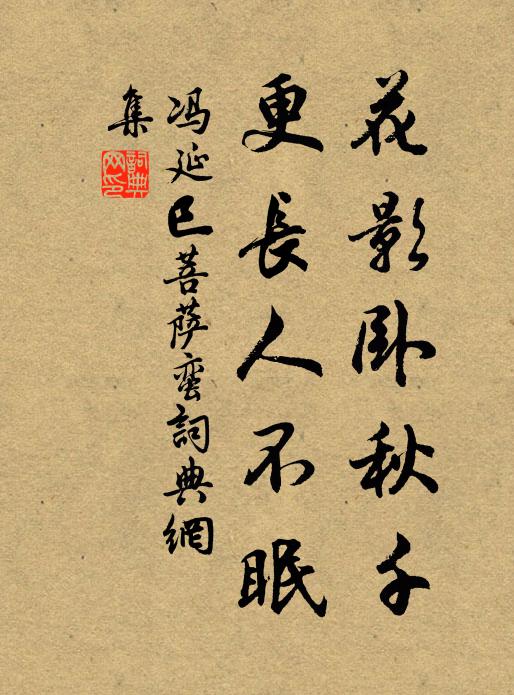 花影卧秋千
更長人不眠
冯延巳菩萨蛮詞典網
集
詞典网印